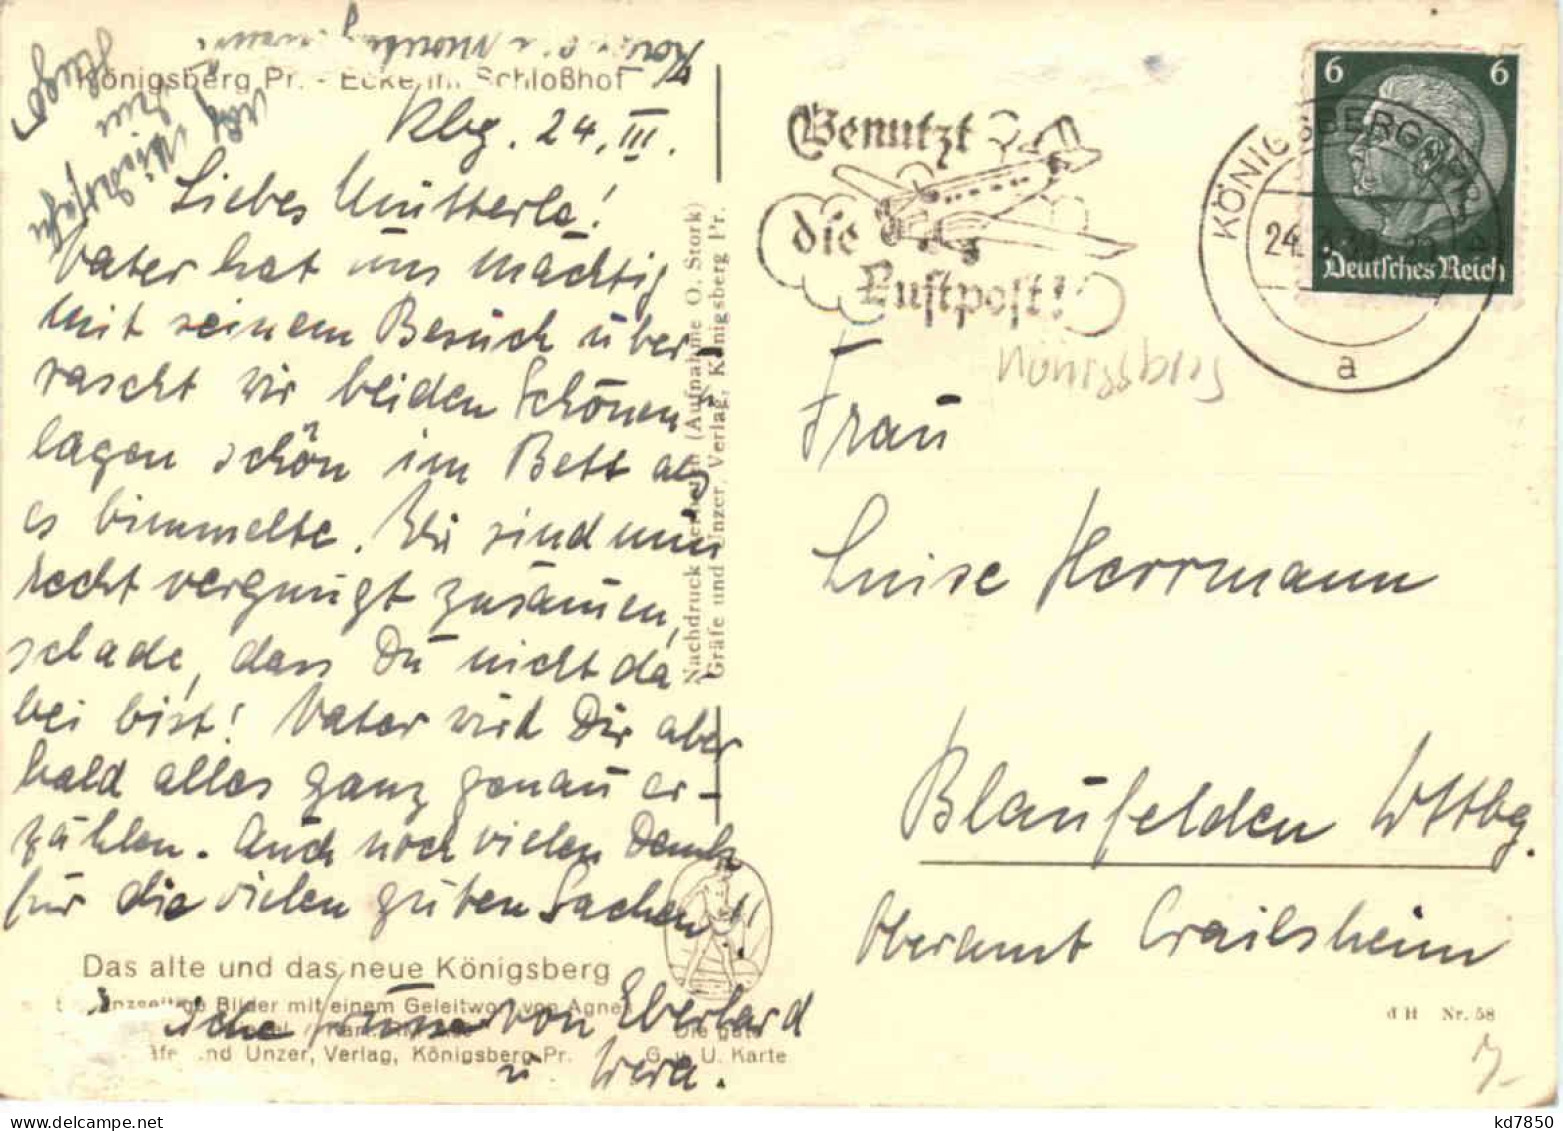 Königsberg Pr. - Ecke im Schloßhof
Kbg. 24. III.
Liebes Mutterle!
Vater hat uns mächtig
mit seinem Besuch über-
rascht wir beiden Schönen
lagen schön im Bett als
es bimmelte. Wir sind nun
recht vergnügt zusammen,
schade, dass Du nicht da
bei bist! Vater wird Dir aber
bald alles ganz genau er-
zählen. Auch noch vielen Dank
für die vielen guten Sachen!!
Das alte und das neue Königsberg
Bilder mit einem Geleitwort von Agnes
von Eberhard
und Unzer, Verlag, Königsberg Pr.
G. u. U. Karte
u. Wera.
Nachdruck verboten (Aufnahme O. Stork)
Gräfe und Unzer, Verlag, Königsberg Pr.
Benutzt
die
Luftpost!
KÖNIGSBERG (PR)
24.
a
6 6
Deutsches Reich
Königsberg
Frau
Luise Herrmann
Blaufelden Wttbg.
Oberamt Crailsheim
d H Nr. 58
kd7850